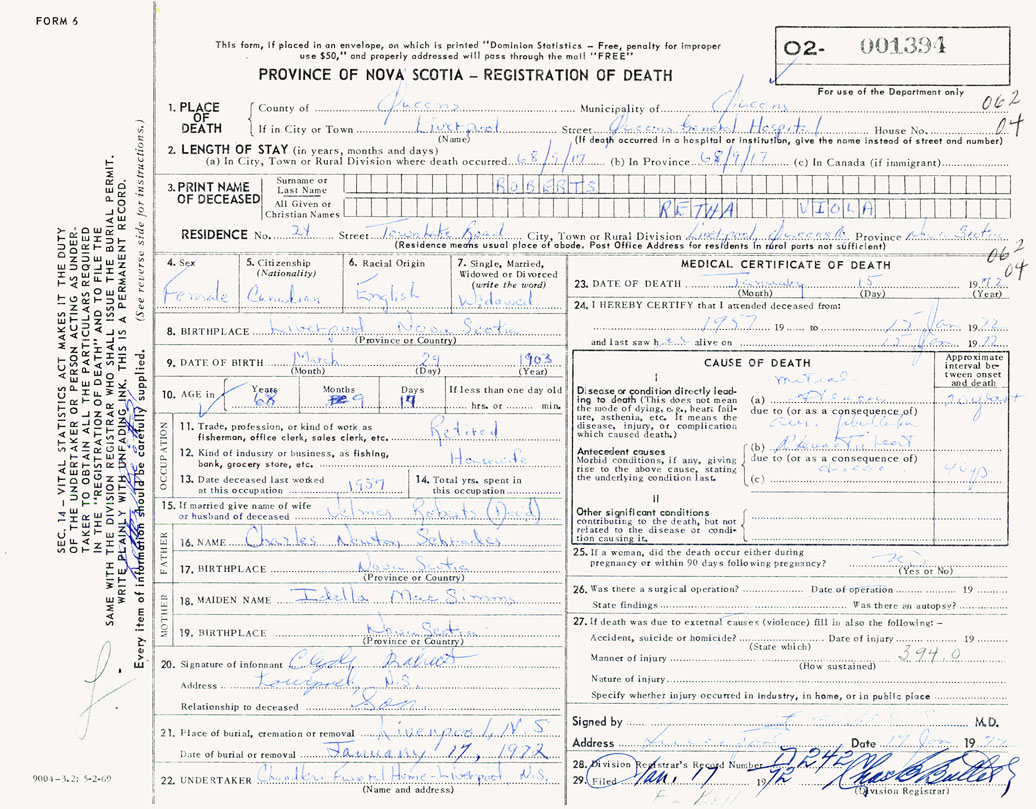 FORM 6
O2- 001394
This form, if placed in an envelope, on which is printed "Dominion Statistics - Free, penalty for improper
use $50," and properly addressed will pass through the mail "FREE"
PROVINCE OF NOVA SCOTIA - REGISTRATION OF DEATH
For use of the Department only
062
04
1. PLACE OF DEATH
County of Queens Municipality of Queens
If in City or Town Liverpool Street Queens General Hospital House No.
(Name) (If death occurred in a hospital or institution, give the name instead of street and number)
2. LENGTH OF STAY (in years, months and days)
(a) In City, Town or Rural Division where death occurred 68/9/17 (b) In Province 68/9/17 (c) In Canada (if immigrant)
3. PRINT NAME OF DECEASED
Surname or Last Name ROBERTS
All Given or Christian Names RETHA VIOLA
RESIDENCE No. 24 Street City, Town or Rural Division Liverpool, Queens Co. Province Nova Scotia
(Residence means usual place of abode. Post Office Address for residents in rural parts not sufficient)
062
04
4. Sex Female
5. Citizenship (Nationality) Canadian
6. Racial Origin English
7. Single, Married, Widowed or Divorced (write the word) Widowed
8. BIRTHPLACE Liverpool Nova Scotia
(Province or Country)
9. DATE OF BIRTH March 29 1903
(Month) (Day) (Year)
10. AGE in Years 68 Months 9 Days 17 If less than one day old
hrs. or min.
OCCUPATION
11. Trade, profession, or kind of work as
fisherman, office clerk, sales clerk, etc. Retired
12. Kind of industry or business, as fishing,
bank, grocery store, etc. Housewife
13. Date deceased last worked
at this occupation 1957
14. Total yrs. spent in
this occupation
15. If married give name of wife
or husband of deceased Roberts (Dec'd)
FATHER
16. NAME Charles Newton
17. BIRTHPLACE Nova Scotia
(Province or Country)
MOTHER
18. MAIDEN NAME Idella Mae Simms
19. BIRTHPLACE Nova Scotia
(Province or Country)
20. Signature of informant Clyde
Address N.S.
Relationship to deceased Son
21. Place of burial, cremation or removal Liverpool, N S
Date of burial or removal January 17, 1972
22. UNDERTAKER Chandlers Funeral Home - Liverpool N.S.
(Name and address)
MEDICAL CERTIFICATE OF DEATH
23. DATE OF DEATH January 15 1972
(Month) (Day) (Year)
24. I HEREBY CERTIFY that I attended deceased from:
1957 19 to 15 Jan 1972
and last saw h alive on 15 Jan 1972
CAUSE OF DEATH
Approximate interval between onset and death
I
Disease or condition directly lead-
ing to death (This does not mean
the mode of dying, e.g., heart fail-
ure, asthenia, etc. It means the
disease, injury, or complication
which caused death.)
mitral
(a)
due to (or as a consequence of)
Antecedent causes
Morbid conditions, if any, giving
rise to the above cause, stating
the underlying condition last.
(b) Rheumatic heart
due to (or as a consequence of)
disease
(c)
II
Other significant conditions
contributing to the death, but not
related to the disease or condi-
tion causing it.
25. If a woman, did the death occur either during
pregnancy or within 90 days following pregnancy? No
(Yes or No)
26. Was there a surgical operation? Date of operation 19
State findings Was there an autopsy?
27. If death was due to external causes (violence) fill in also the following: -
Accident, suicide or homicide? Date of injury 19
(State which)
Manner of injury 394.0
(How sustained)
Nature of injury
Specify whether injury occurred in industry, in home, or in public place
Signed by M.D.
Address Liverpool Date 17 Jan 1972
28. Division Registrar's Record Number
29. Filed Jan. 17 1972
(Division Registrar)
SEC. 14 - VITAL STATISTICS ACT MAKES IT THE DUTY
OF THE UNDERTAKER OR PERSON ACTING AS UNDER-
TAKER TO OBTAIN ALL THE PARTICULARS REQUIRED
IN THE "REGISTRATION OF DEATH" AND TO FILE THE
SAME WITH THE DIVISION REGISTRAR WHO SHALL ISSUE THE BURIAL PERMIT.
WRITE PLAINLY WITH UNFADING INK. THIS IS A PERMANENT RECORD.
Every item of information should be carefully supplied. (See reverse side for instructions.)
9004-3.2: 5-2-69